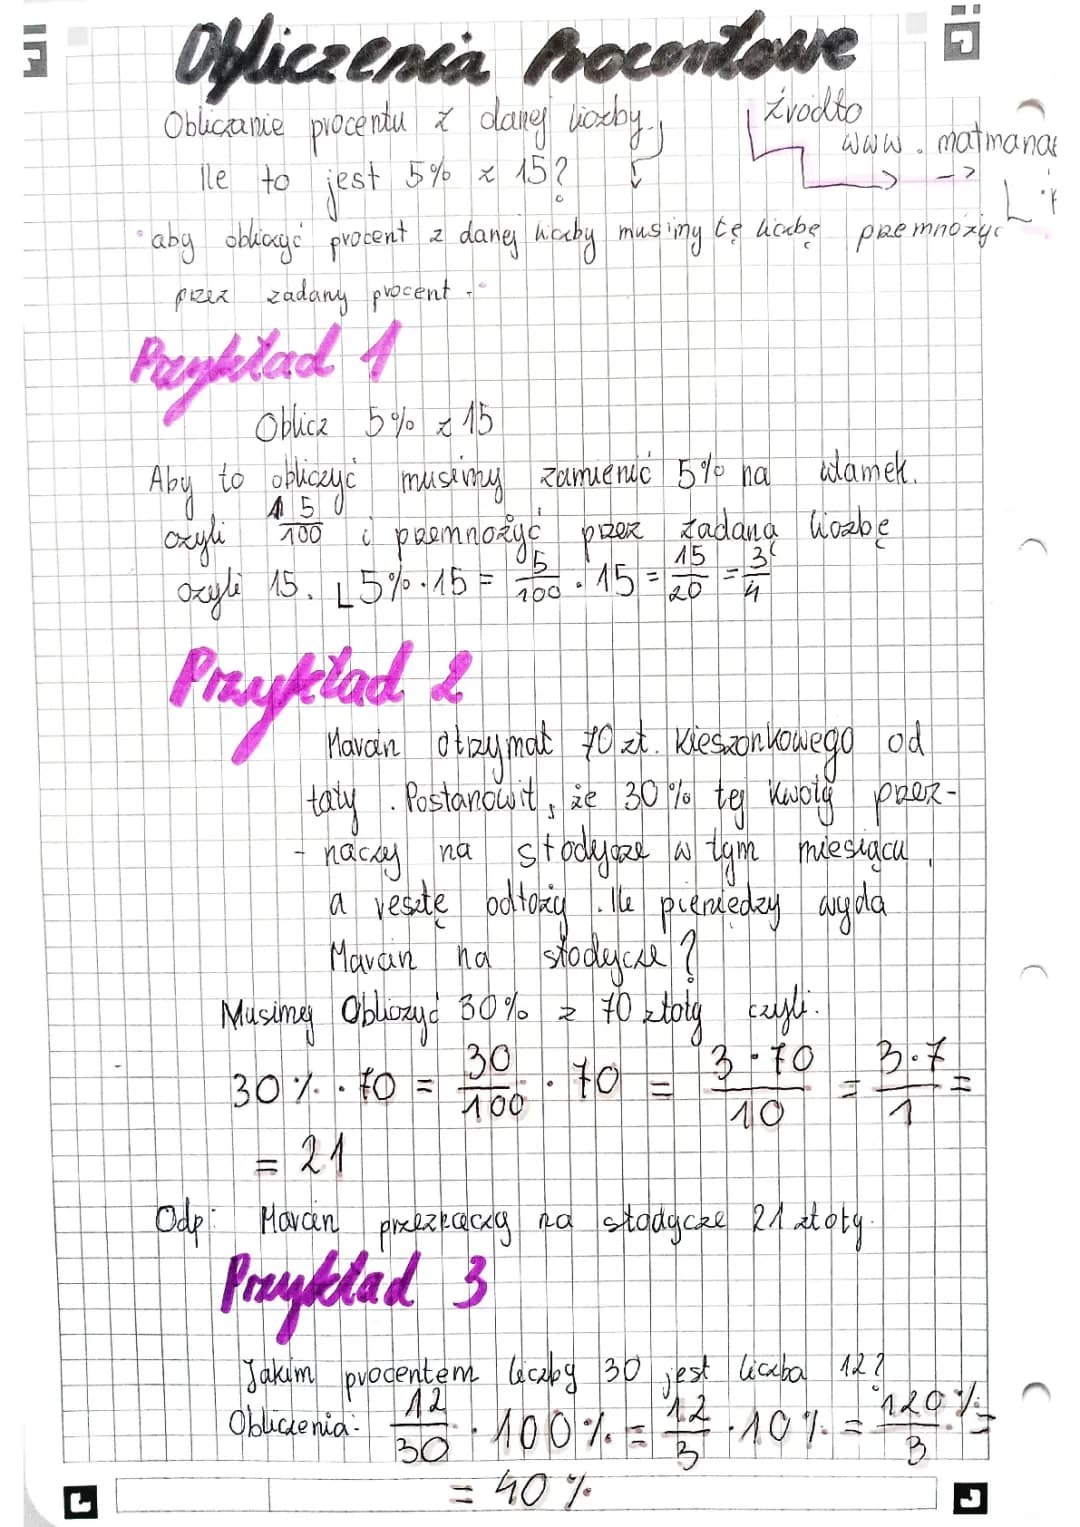 Obliczenia Procentowe
Obliczanie procentu z danej liczby.
źródło
www. matmana
Ile to jest 5% z 15?
aby obliczyć procent z danej liczby musimy tę liczbę przemnożyć
przez zadany procent.
Przykład 1
Oblicz 5% z 15
Aby to obliczyć musimy zamienić 5% na ułamek.
czyli 5/100 i przemnożyć przez zadaną liczbę
czyli 15. 5% · 15 = 5/100 · 15 = 15/20 = 3/4
Przykład 2
Marcin otrzymał 70 zł. kieszonkowego od
taty. Postanowił, że 30% tej kwoty przez-
- naczy na słodycze w tym miesiącu,
a resztę odłoży. Ile pieniędzy wyda
Marcin na słodycze?
Musimy Obliczyć 30% z 70 złoty czyli.
30% · 70 = 30/100 · 70 = 3 · 70/10 = 3 · 7/1 =
= 21
Odp: Marcin przeznaczy na słodycze 21 złoty.
Przykład 3
Jakim procentem liczby 30 jest liczba 12?
Obliczenia: 12/30 · 100% = 12/3 · 10% = 120%/3 =
= 40%